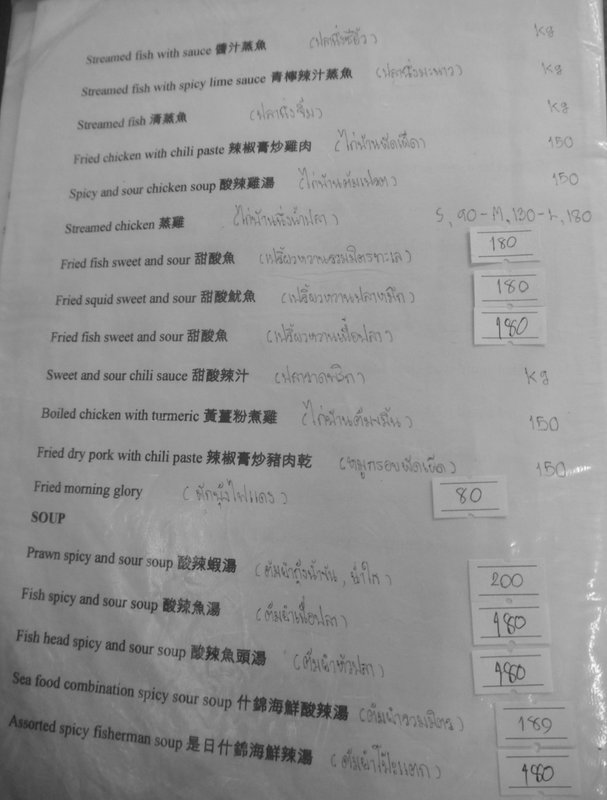 Streamed fish with sauce 醬汁蒸魚 (ปลานึ่งซีอิ้ว) kg
Streamed fish with spicy lime sauce 青檸辣汁蒸魚 (ปลานึ่งมะนาว) kg
Streamed fish 清蒸魚 (ปลานึ่งจิ้ม) kg
Fried chicken with chili paste 辣椒膏炒雞肉 (ไก่บ้านผัดเผ็ด) 150
Spicy and sour chicken soup 酸辣雞湯 (ไก่บ้านต้มเปรต) 150
Streamed chicken 蒸雞 (ไก่บ้านนึ่งน้ำปลา) S, 90-M, 130-L, 180
Fried fish sweet and sour 甜酸魚 (เปรี้ยวหวานรวมมิตรทะเล) 180
Fried squid sweet and sour 甜酸魷魚 (เปรี้ยวหวานปลาหมึก) 180
Fried fish sweet and sour 甜酸魚 (เปรี้ยวหวานเนื้อปลา) 180
Sweet and sour chili sauce 甜酸辣汁 (ปลาราดพริก) kg
Boiled chicken with turmeric 黃薑粉煮雞 (ไก่บ้านต้มขมิ้น) 150
Fried dry pork with chili paste 辣椒膏炒豬肉乾 (หมูกรอบผัดเผ็ด) 150
Fried morning glory (ผักบุ้งไฟแดง) 80
SOUP
Prawn spicy and sour soup 酸辣蝦湯 (ต้มยำกุ้งน้ำข้น, น้ำใส) 200
Fish spicy and sour soup 酸辣魚湯 (ต้มยำเนื้อปลา) 180
Fish head spicy and sour soup 酸辣魚頭湯 (ต้มยำหัวปลา) 180
Sea food combination spicy sour soup 什錦海鮮酸辣湯 (ต้มยำรวมมิตร) 180
Assorted spicy fisherman soup 是日什錦海鮮辣湯 (ต้มยำโป๊ะแตก) 180